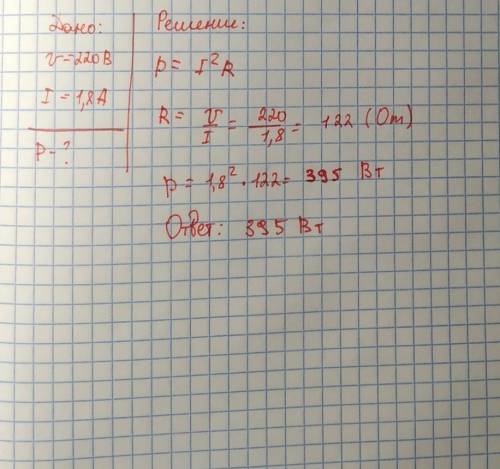 Дано:
U=220В
I=1,8А
P-?
Решение:
P= I²R
R= U/I = 220/1,8 = 122 (Ом)
P= 1,8²·122= 395 Вт
Ответ: 395 Вт